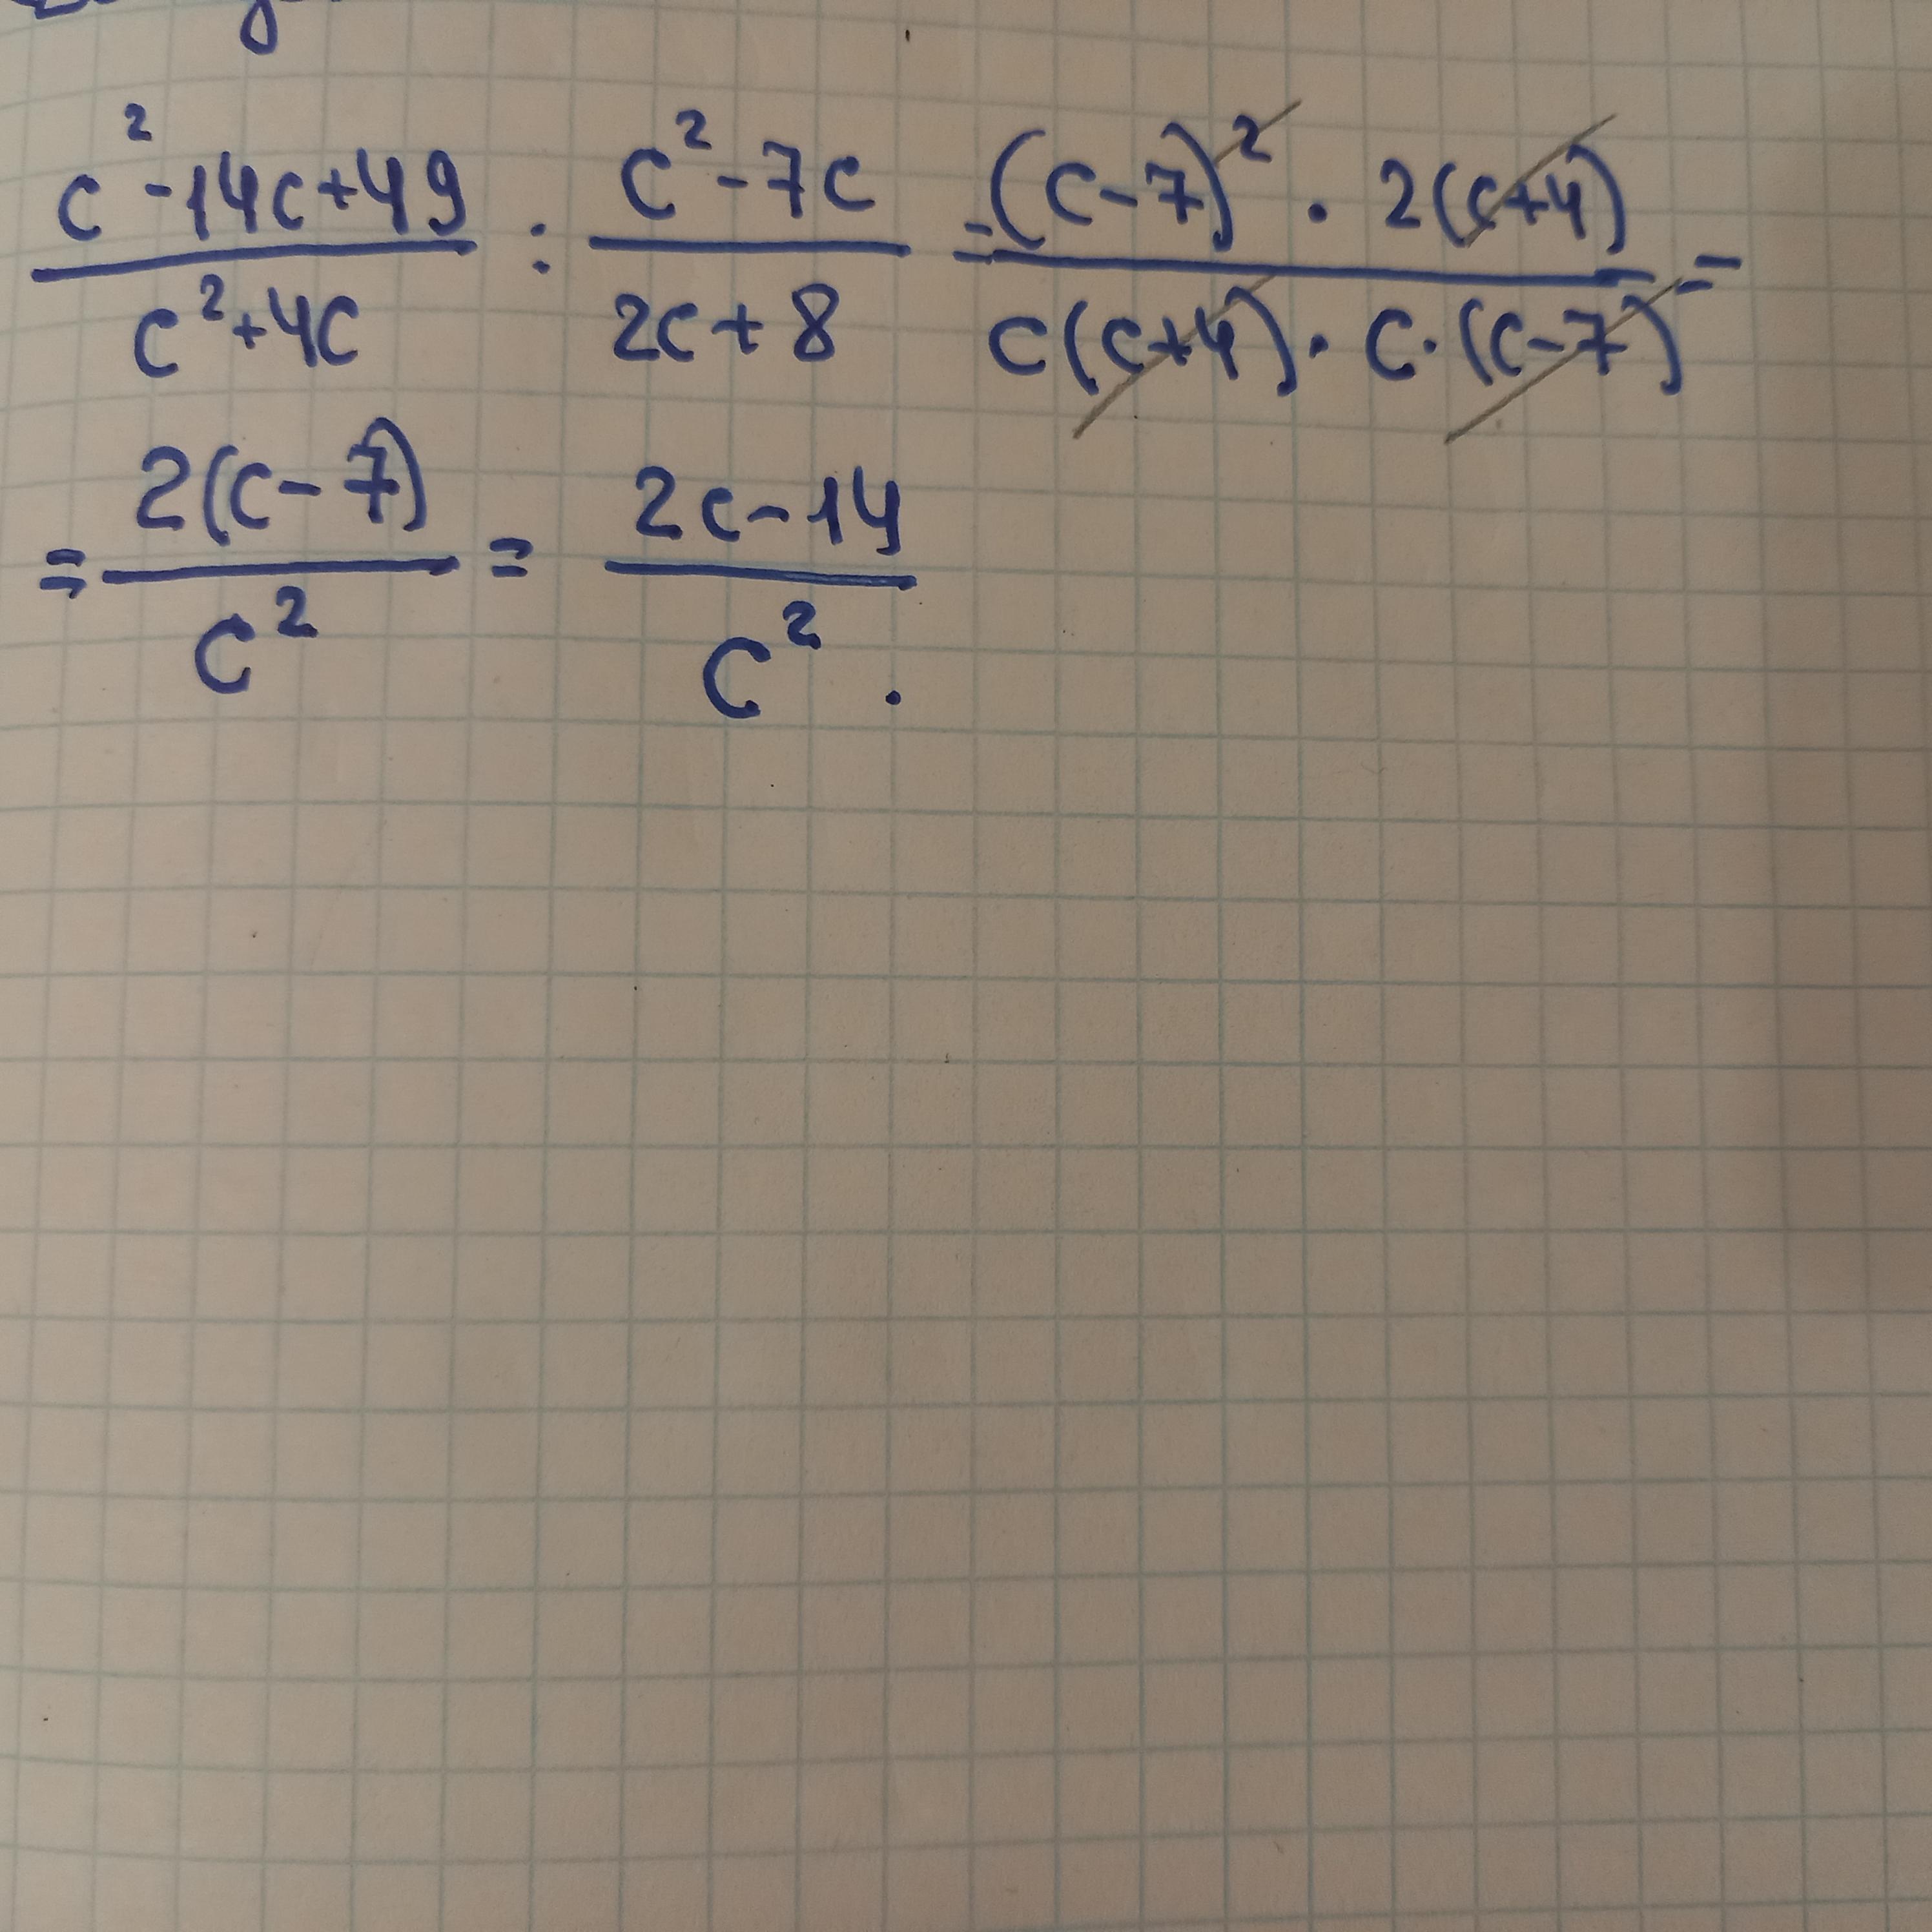 c² - 14c + 49 / c² + 4c : c² - 7c / 2c + 8 = (c - 7)² · 2(c + 4) / c(c + 4) · c · (c - 7) =
= 2(c - 7) / c² = 2c - 14 / c² .